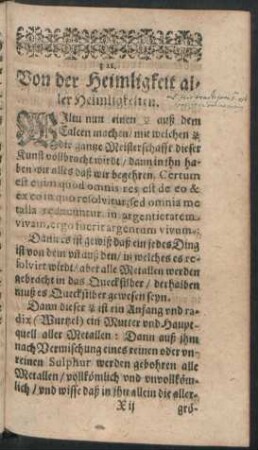 Von der Heimligkeit al-
ler Heimligkeiten.
WIltu nun einen ☿ auß dem
Talcen machen / mit welchen ☿
die gantze Meisterschafft dieser
Kunst vollbracht wirdt / dann in ihn ha-
ben wir alles daß wir begehren. Certum
est enim quod omnis res est de eo &
ex eo in quo resolvitur, sed omnis me
talla resolvuntur in argentum
vivam, ergo fuerit argentum vivum.
Dann es ist gewiß daß ein jedes Ding
ist von dem vnd auß den / in welches es re-
solvirt wirdt / aber alle Metallen werden
gebracht in das Quecksilber / derhalben
muß es Quecksilber gewesen seyn.
Dann dieser ☿ ist ein Anfang vnd ra-
dix (Wurtzel) ein Mutter vnd Haupt-
quell aller Metallen: Dann auß ihm
nach Vermischung eines reinen oder vn-
reinen Sulphur werden gebohren alle
Metallen / vollkömlich vnd vnvollköm-
lich / vnd wisse daß in ihn allein die aller-
X ij grö-